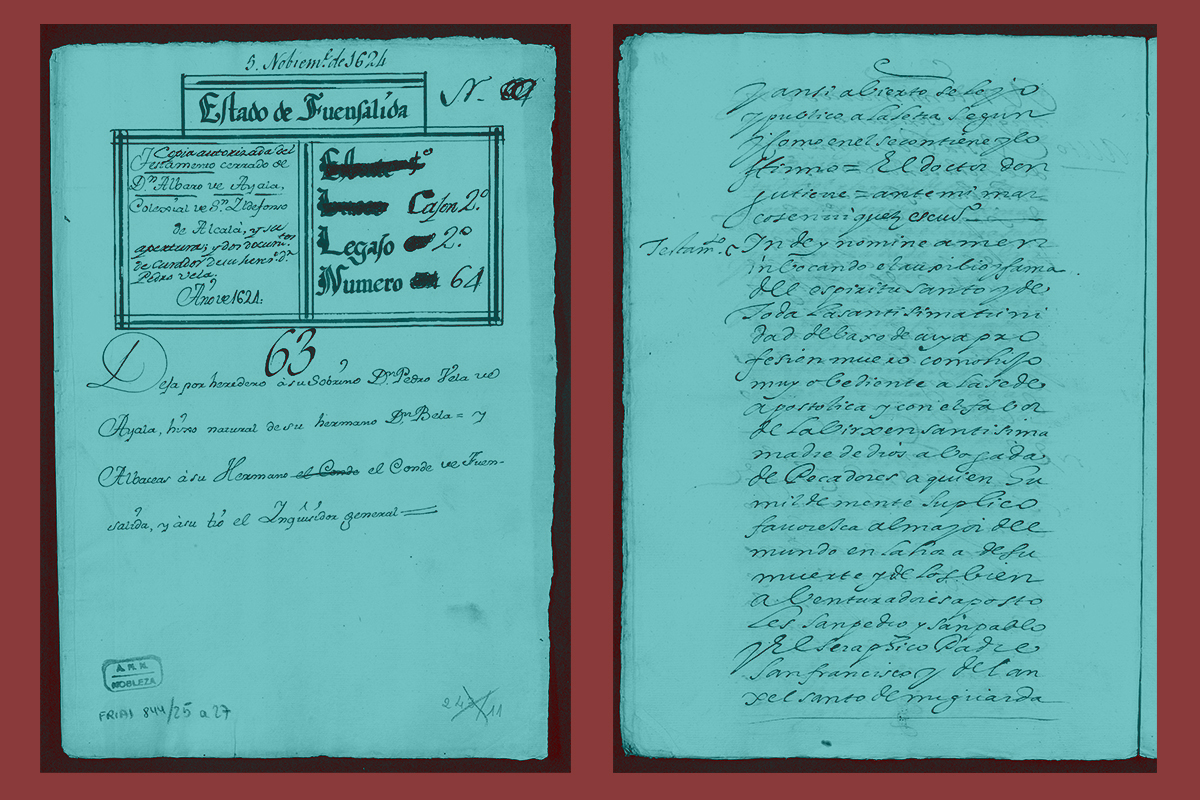 5. Nobiem.e de 1624
Estado de Fuensalida
N.
Copia autorizada del
Testamento cerrado de
Dn. Albaro de Ayala,
Colexial de Sn. Ildefonso
de Alcalá, y su
apertura; y dos docum.tos
de curador de su hered.o Dn.
Pedro Vela.
Año de 1624.
Cajon 2.º
Legajo 2.º
Numero 64
63
Deja por heredero à su Sobrino Dn. Pedro Vela de
Ayala, hijo natural de su hermano Dn. Bela = y
Albaceas à su Hermano el Conde el Conde de Fuen-
salida, y à su tio el Inquisidor general =
A. H. N.
NOBLEZA
FRIAS 844/25 a 27
y ansi abierto se leyo
y publico a la letra segun
y como en el se contiene y lo
firmo = El doctor don
gutierre = ante mi mar-
cos enrriquez escriv.o
Testam.to In dey nomine amen
inbocando el auxilio y fama
del espiritu santo y de
toda la santisima trini
dad debaxo de cuya pro
fesion muero como hijo
muy obediente a la sede
apostolica y con el fabor
de la birxen santisima
madre de dios abogada
de Pecadores a quien hu
mildemente suplico
favoresca al mayor del
mundo en la hora de su
muerte y de los bien
abenturados aposto
les san pedro y san pablo
y El seraphico Padre
san francisco y del an
xel santo de mi guarda